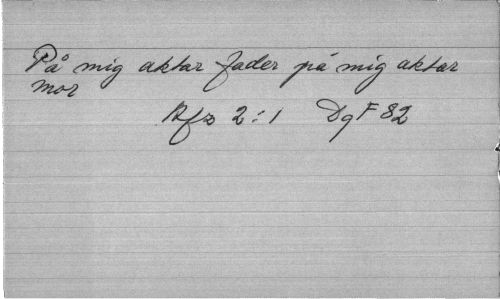 På mig aktar fader på mig aktar
mor
Afz 2:1 DgF 82